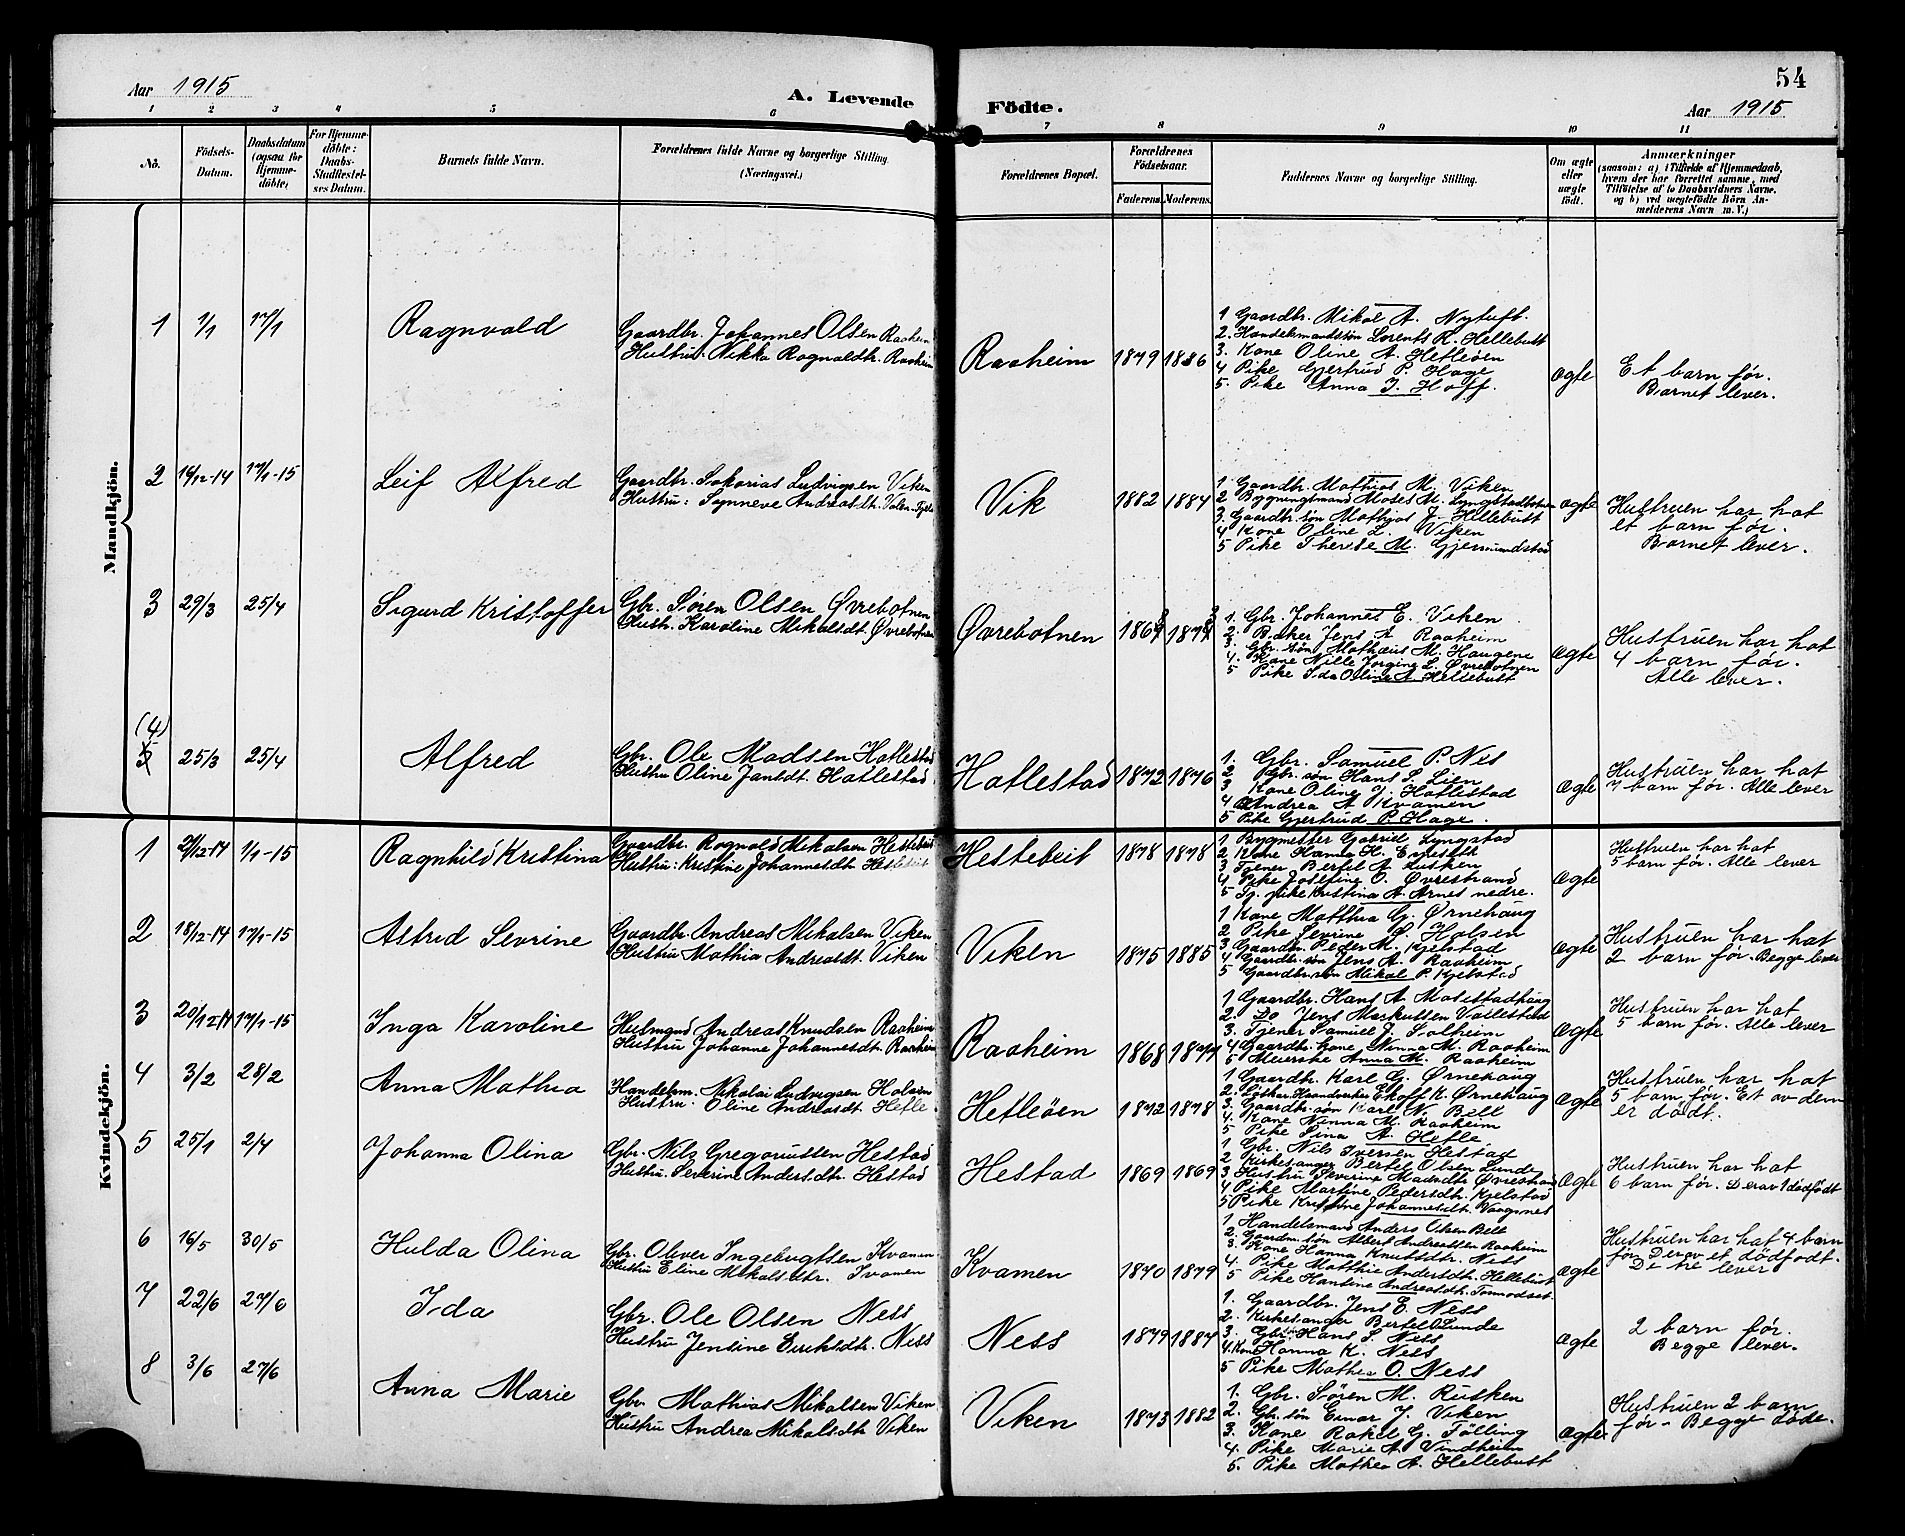 Aar 1915
A. Levende
1 2 3 4 5 6
No.
Födsels-Datum.
Daabsdatum (ogsaa for Hjemme-döbte)
For Hjemme-döbte: Daabs-Stadfæstel-ses Datum.
Barnets fulde Navn.
Forældrenes fulde Navne og borgerlige Stilling.
(Næringsvei.)
Mandkjön.
1 1/1 17/1 Ragnvald Gaardbr. Johannes Olsen Raaheim
Hustru: Rognaldtr. Raaheim
2 14/12-14 17/1-15 Leif Alfred Gaardbr. Sakarias Ludvigsen Viken
Hustru: Synneve Andreasdtr.
3 29/3 25/4 Sigurd Kristoffer Gbr. Søren Olsen Øvrebotnen
Hustr. Karoline Mikalsdt. Øvrebotnen
(4)
5 25/3 25/4 Alfred Gbr. Ole Madsen Hatlestad
Hustru Oline Hatlestad
Kvindekjön.
1 1/1-15 Ragnhild Kristina Gaardbr. Rognald Mikalsen Hestebeit
Hustru: Kristine Johannesdtr. Hestebeit
2 18/12-14 17/1-15 Astrid Sevrine Gaardbr. Andreas Mikalsen Viken
Hustru Mathia Andreasdt. Viken
3 20/12-14 17/1-15 Inga Karoline Andreas Knudsen Raaheim
Hustru Johanne Johannesdtr. Raaheim
4 3/2 28/2 Anna Mathea Handelsm. Nikolai Ludvigsen Holsen
Hustru: Oline Andreasdt. Hefle
5 25/1 2/4 Johanna Olina Gbr. Nils Gregoriussen Hestad
Hustru. Severine Andersdtr. Hestad
6 16/5 30/5 Hulda Olina Gbr. Oliver Ingebrigtsen Kvamen
Hustru Eline Mikalsdtr. Kvamen
7 22/6 27/6 Ida Gbr. Ole Olsen Ness
Hustru Jensine Ness
8 3/6 27/6 Anna Marie Gbr. Mathias Mikalsen Viken
Hustru Andrea Mikalsdtr Viken
54
Födte.
Aar 1915
7 8 9 10 11
Forældrenes Bopæl.
Forældrenes Födselsaar.
Faderens. Moderens.
Faddernes Navne og borgerlige Stilling.
Om ægte eller uægte födt.
Anmærkninger
(saasom: a) i Tilfælde af Hjemmedaab,
hvem der har forrettet samme, med
Tilföielse af to Daabsvidners Navne,
og b) ved uægtefödte Börn An-
melderens Navn m. V.)
Raaheim 1879 1886
1 Gaardbr. Mikal A. Nytuft.
2. Handelsmandsøn Lorents K. Hellebust
3. Kone Oline A. Hefleøen
4 Pike Gjertrud P. Hage
5. Pike Anna J. Hoff.
ægte
Et barn før.
Barnet lever.
Vik 1882 1884
1. Gaardbr. Mathias M. Viken
2 Bygningsmand Moses M. Lyngstadbotnen
3. Gaardbr. søn Mathias J. Hellebust
4 Kone Oline L. Viken
5 Pike Therese M. Gjemundstad
ægte
Hustruen har hat
et barn før.
Barnet lever.
Øvrebotnen
1. Gbr. Johannes E. Viken
2. Baker Jens A Raaheim
3. Gbr. søn Mathæus M. Haugene
4. Kone Nille Jorgine L. Øvrebotnen
5 Pike Ida Oline A Hellebust
ægte
Hustruen har hat
4 barn før.
Alle lever.
Hatlestad 1872 1876
1. Gbr. Samuel P. Nes
2 Gbr. søn Hans S. Lien
3 Kone Oline J. Hatlestad
4 Andrea A Kvamen
5. Pike Gjertrud P. Hage.
ægte
Hustruen har hat
7 barn før. Alle lever
Hestebeit 1878 1878
1 Bygmester Gabriel Lyngstad
2 Kone Hanna H.
3 Tjener Bertel A Rusken
4 Pike Josefine O. Øvrestrand
5 Tj. pike Kristina A. Arnes nedre.
ægte
Hustruen har hat
5 barn før. Alle lever
Viken 1875 1885
1 Kone Matthia G. Ørnehaug
2 Pike Sevrine Holsen
3 Gaardbr. Peder M. Kjelstad
4 Gaardbr. søn Jens A. Raaheim
5 Gaardbr. søn Mikal P. Kjelstad
ægte
Hustruen har hat
2 barn før. Begge lever
Raaheim 1868 1877
1 Gaardbr. Hans A Mosestadhaug
2. Do Jens Markussen Vallestad
3. Tjener Samuel J. Solheim
4 Gaardbr. kone Ninna M. Raaheim
5 Meierske Anna M. Raaheim
ægte
Hustruen har hat
5 barn før. Alle lever
Hefleøen 1872 1878
1 Gaardbr. Karl G. Ørnehaug
2. Haandverker K. Ørnehaug
3. Gaardbr. søn Karl N. Bell
4. Kone Ninna M. Raaheim
5 Pike Sina A. Hefle.
ægte
Hustruen har hat
5 barn før. Et av dem
er dødt.
Hestad 1869 1869
1 Gbr. Nils Iversen Hestad
2 Kirkesanger Bertel Olsen Lunde
3 Hustru Severine Madsdtr Øvrestrand
4 Pike Martine Pedersdtr. Kjelstad
5 Pike Kristine Johannesdtr. Vaagsnes
ægte
Hustruen har hat
6 barn før. Derav 1 dødfødt
Kvamen 1870 1879
1 Handelsmand Anders Olsen Bell
2. Gaardm. søn Albert Andreassen Raaheim
3. Kone Hanna Knutsdtr. Ness
4. Pike Matthie Andersdtr. Hellebust
5 Pike Hansine Andreasdtr. Tormodset
ægte
Hustruen har hat 4 barn
før Derav et dødfødt.
De tre lever
Ness 1879 1884
1. Gaardbr. Jens E. Ness
2. Kirkesanger Bertel O. Lunde
3. Gbr. søn Hans S. Ness
4. Kone Hanna K. Ness
5 Pike Mathea O. Ness
ægte
2 barn før.
Begge lever.
Viken 1873 1882
1. Gbr. Søren M. Rusken
2. Gbr. søn Einar J. Viken
3. Kone Rakel G. Fölling
4. Pike Marie A. Vindheim
5. Pike Mathea A. Hellebust
ægte
Hustruen 2 barn
før. Begge døde.